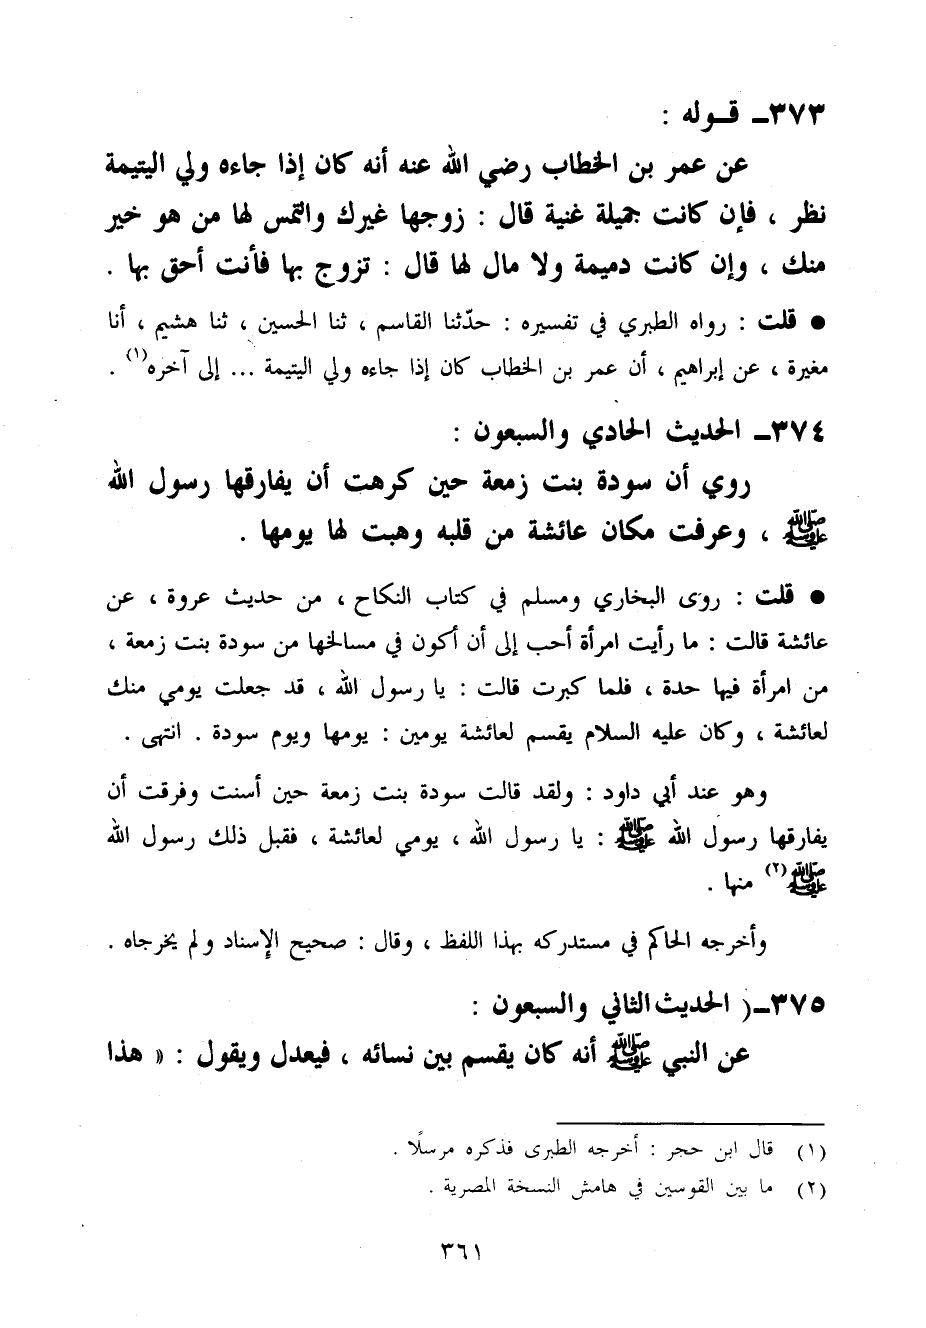 ٣٧٣ـ قـوله :
عن عمر بن الخطاب رضي الله عنه أنه كان إذا جاءه ولي اليتيمة
نظر ، فإن كانت جميلة غنية قال : زوجها غيرك والتمس لها من هو خير
منك ، وإن كانت دميمة ولا مال لها قال : تزوج بها فأنت أحق بها .
● قلت : رواه الطبري في تفسيره : حدّثنا القاسم ، ثنا الحسين ، ثنا هشيم ، أنا
مغيرة ، عن إبراهيم ، أن عمر بن الخطاب كان إذا جاءه ولي اليتيمة ... إلى آخره(١) .
٣٧٤ـ الحديث الحادي والسبعون :
روي أن سودة بنت زمعة حين كرهت أن يفارقها رسول الله
ﷺ ، وعرفت مكان عائشة من قلبه وهبت لها يومها .
● قلت : روى البخاري ومسلم في كتاب النكاح ، من حديث عروة ، عن
عائشة قالت : ما رأيت امرأة أحب إلى أن أكون في مسالخها من سودة بنت زمعة ،
من امرأة فيها حدة ، فلما كبرت قالت : يا رسول الله ، قد جعلت يومي منك
لعائشة ، وكان عليه السلام يقسم لعائشة يومين : يومها ويوم سودة . انتهى .
وهو عند أبي داود : ولقد قالت سودة بنت زمعة حين أسنت وفرقت أن
يفارقها رسول الله ﷺ : يا رسول الله ، يومي لعائشة ، فقبل ذلك رسول الله
ﷺ(٢) منها .
وأخرجه الحاكم في مستدركه بهذا اللفظ ، وقال : صحيح الإسناد ولم يخرجاه .
٣٧٥ـ( الحديث الثاني والسبعون :
عن النبي ﷺ أنه كان يقسم بين نسائه ، فيعدل ويقول : « هذا
(١) قال ابن حجر : أخرجه الطبرى فذكره مرسلًا .
(٢) ما بين القوسين في هامش النسخة المصرية .
٣٦١